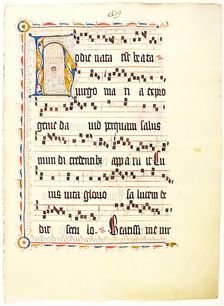 Hodie nata est beata
uirgo maria ex pro
genie dauid per quam salus
mundi credentib; apparuit Cu
ius uita gloriosa lucem de
dit seculo. Beatissime uir